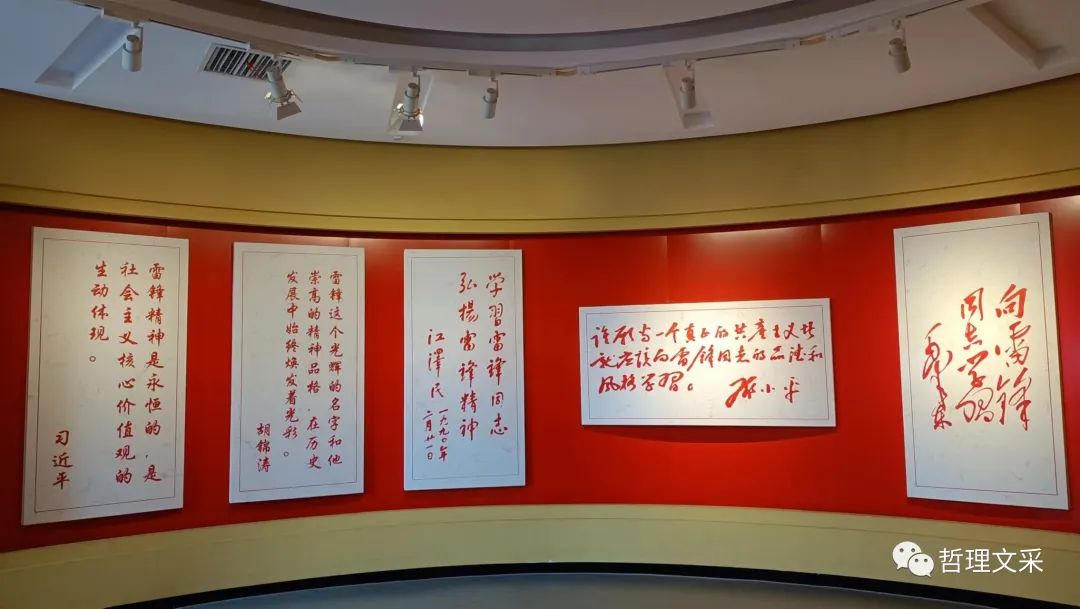 雷锋精神是永恒的,是
社会主义核心价值观的
生动体现。
习近平
雷锋这个光辉的名字和他
崇高的精神品格,在历史
发展中始终焕发着光彩。
胡锦涛
学習雷锋同志
弘揚雷锋精神
江澤民
一九九〇年
二月廿一日
谁愿当一个真正的共產主义者
就应该向雷锋同志的品德和
风格学習。
邓小平
向雷锋
同志学習
毛泽东
哲理文采